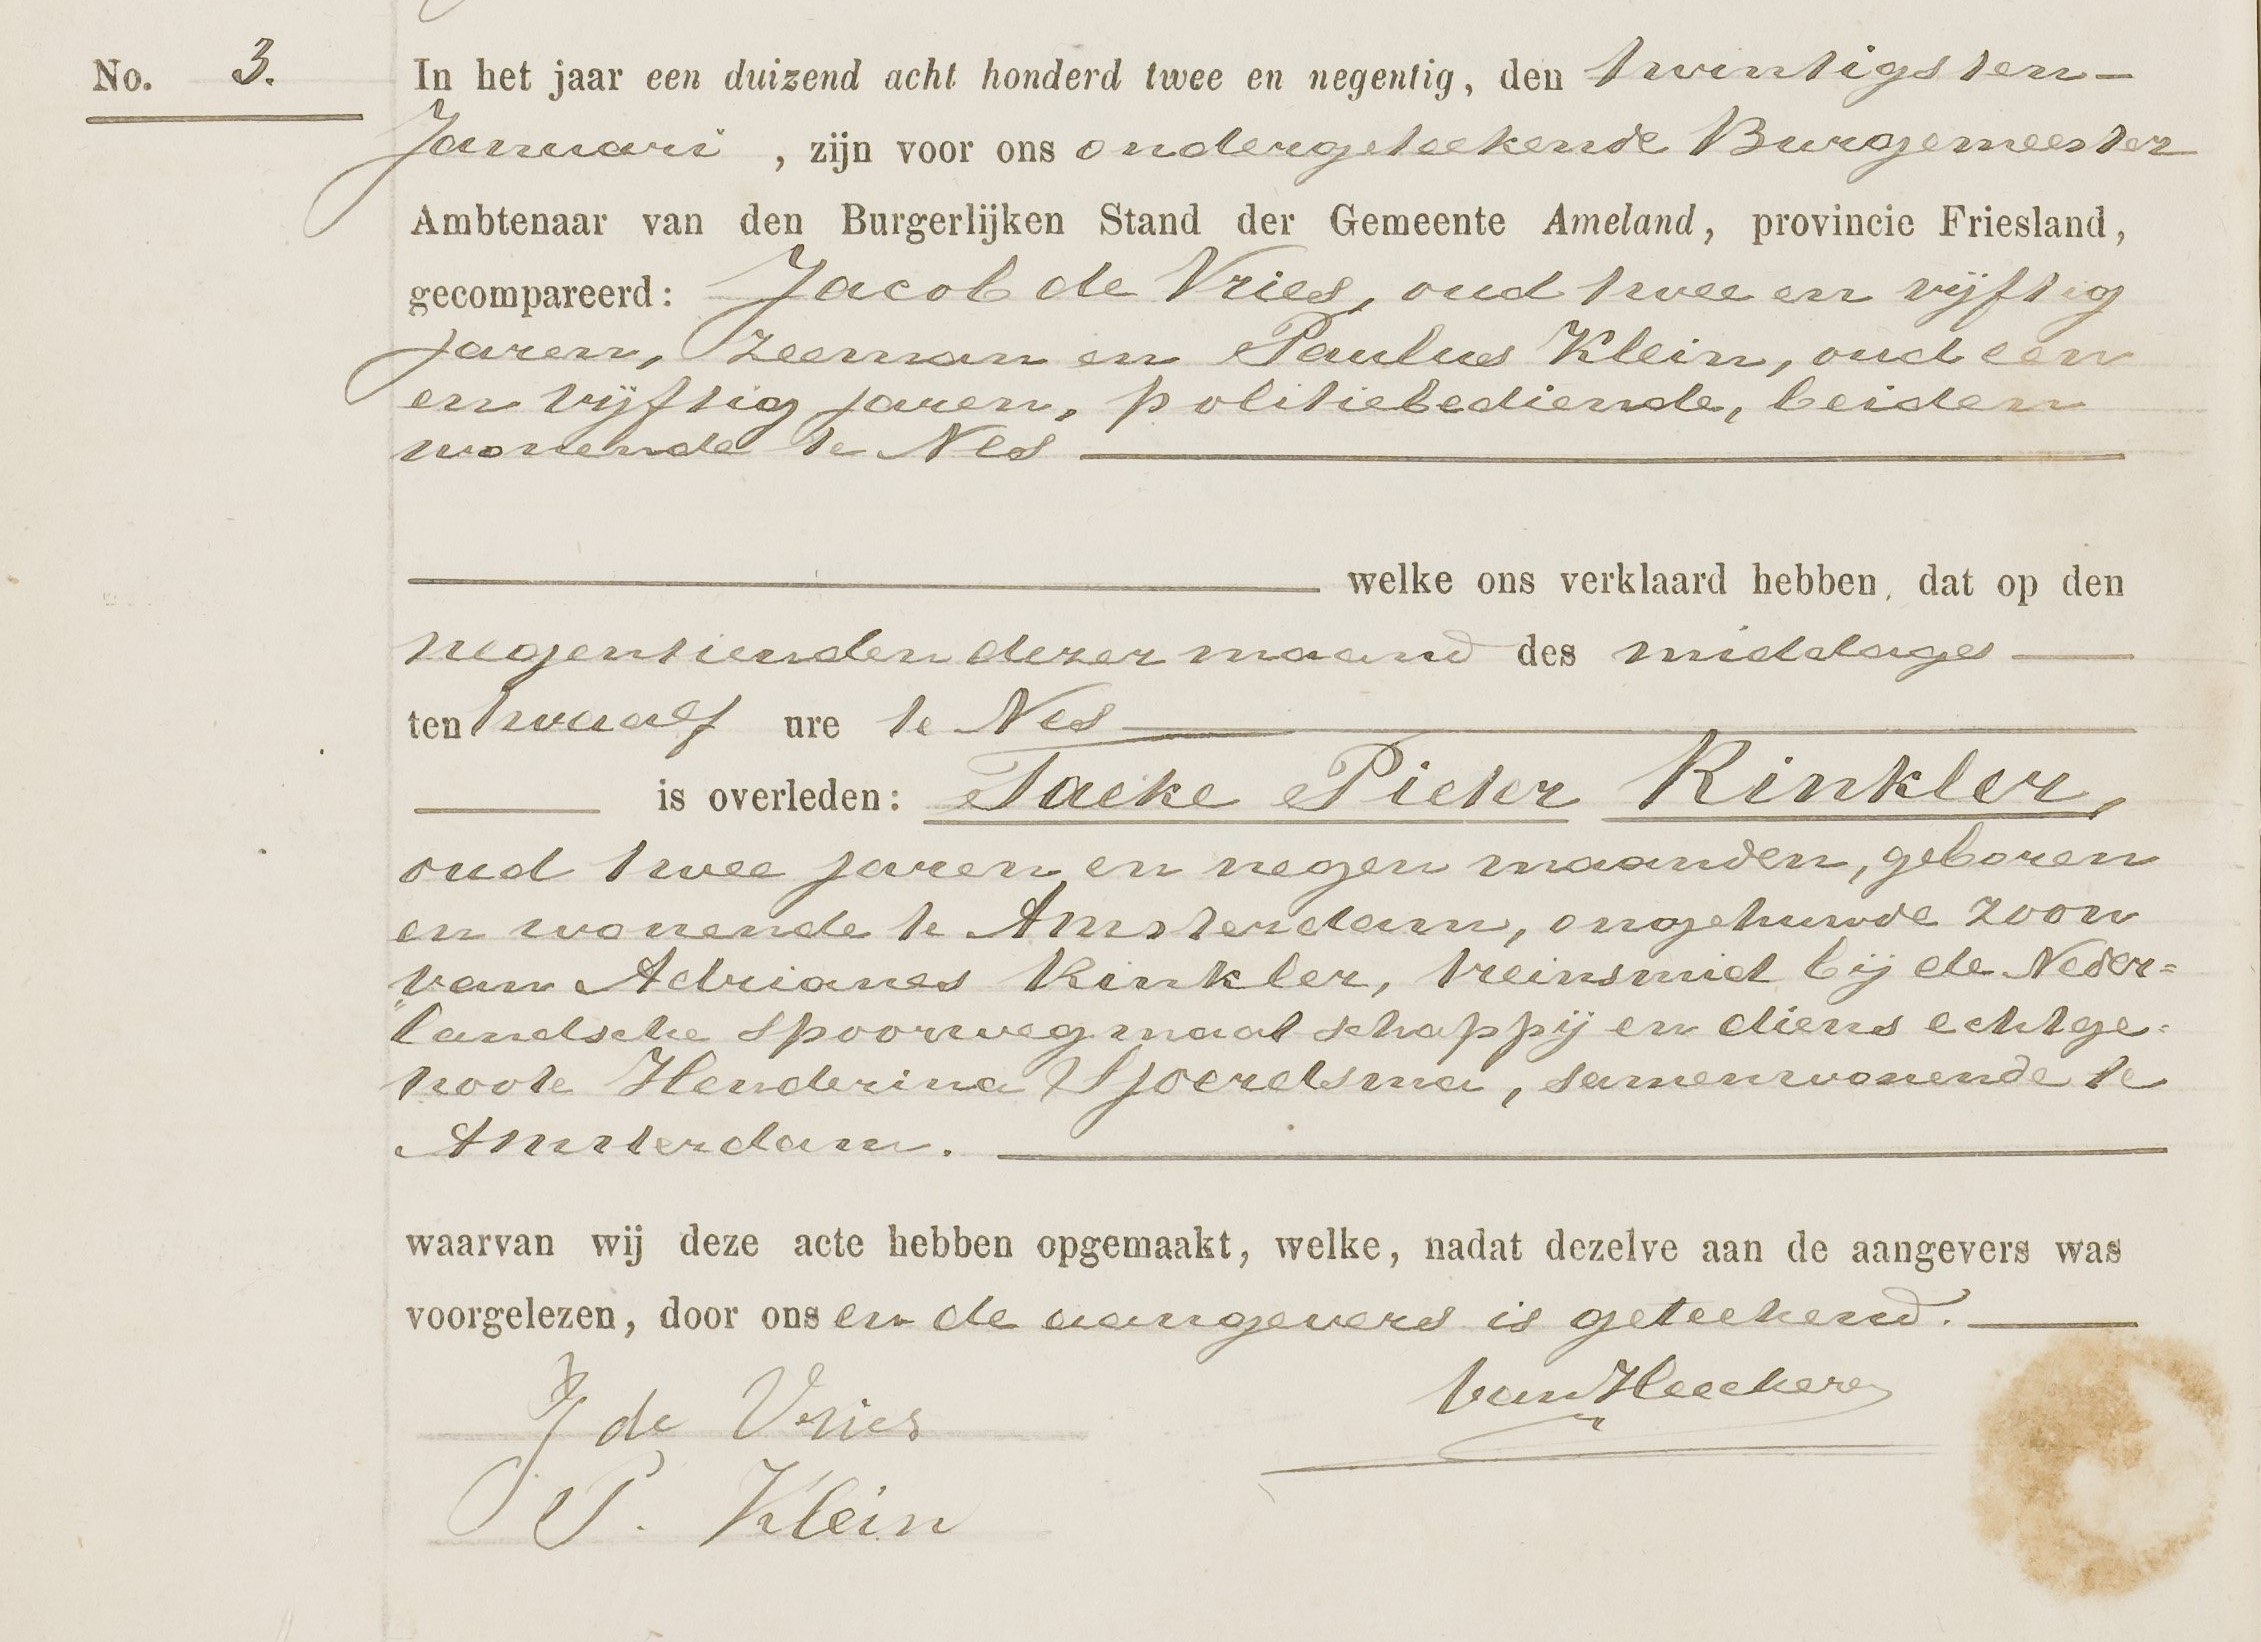 No. 3. In het jaar een duizend acht honderd twee en negentig, den twintigsten —
Januari , zijn voor ons ondergeteekende Burgemeester
Ambtenaar van den Burgerlijken Stand der Gemeente Ameland, provincie Friesland,
gecompareerd: Jacob de Vries, oud twee en vijftig
jaren, zeeman en Paulus Klein, oud een
en vijftig jaren, politiebediende, beiden
wonende te Nes
welke ons verklaard hebben, dat op den
negentienden dezer maand des middags
ten twaalf ure te Nes
is overleden: Taeke Pieter Kinkler,
oud twee jaren en negen maanden, geboren
en wonende te Amsterdam, ongehuwde zoon
van Adrianes Kinkler, treinsmid bij de Neder=
"landsche spoorwegmaatschappij en diens echtge=
noote Henderina Sjoerdsma, samenwonende te
Amsterdam.
waarvan wij deze acte hebben opgemaakt, welke, nadat dezelve aan de aangevers was
voorgelezen, door ons en de aangevers is geteekend.
J de Vries
van Heeckeren
P. Klein